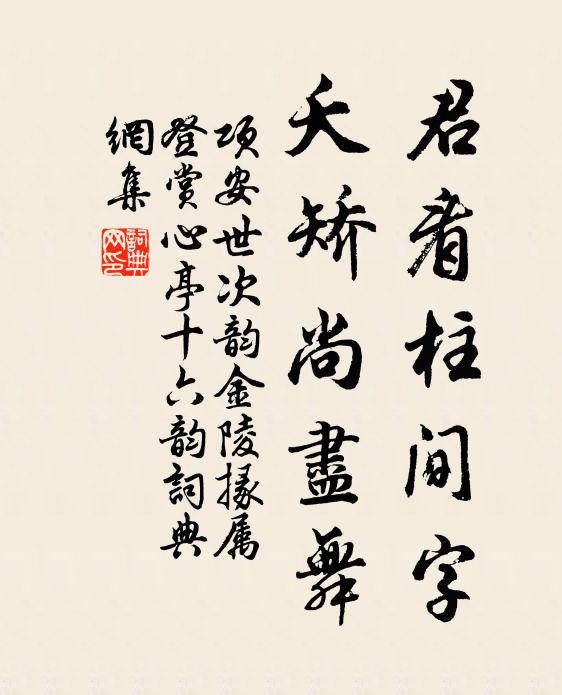 君看柱间字
夭矫尚盡舞
项安世次韵金陵掾属
登赏心亭十六韵詞典
網集
詞典
网印